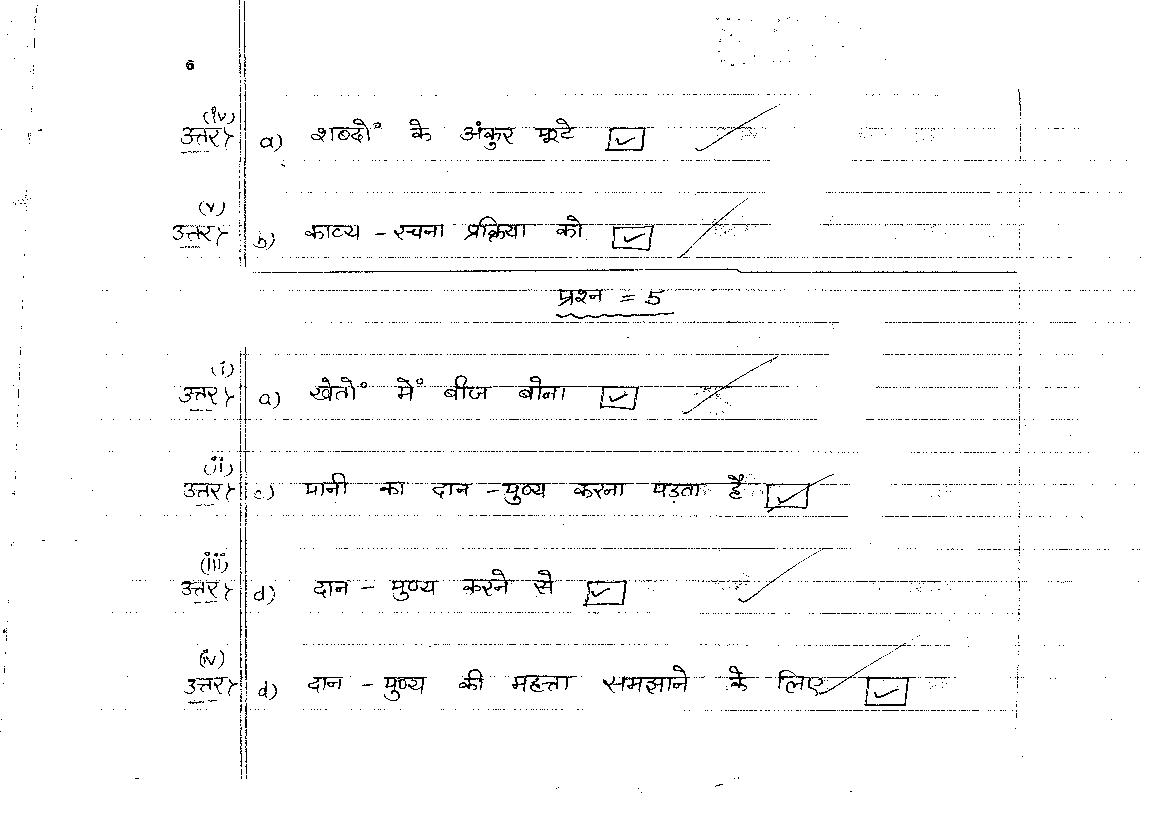 6
(iv)
उत्तर> a) शब्दों के अंकुर फूटे ☑
(v)
उत्तर> b) काव्य - रचना प्रक्रिया को ☑
प्रश्न = 5
(i)
उत्तर> a) खेतों में बीज बोना ☑
(ii)
उत्तर> c) पानी का दान - पुण्य करना पड़ता है ☑
(iii)
उत्तर> d) दान - पुण्य करने से ☑
(iv)
उत्तर> d) दान - पुण्य की महत्ता समझाने के लिए ☑